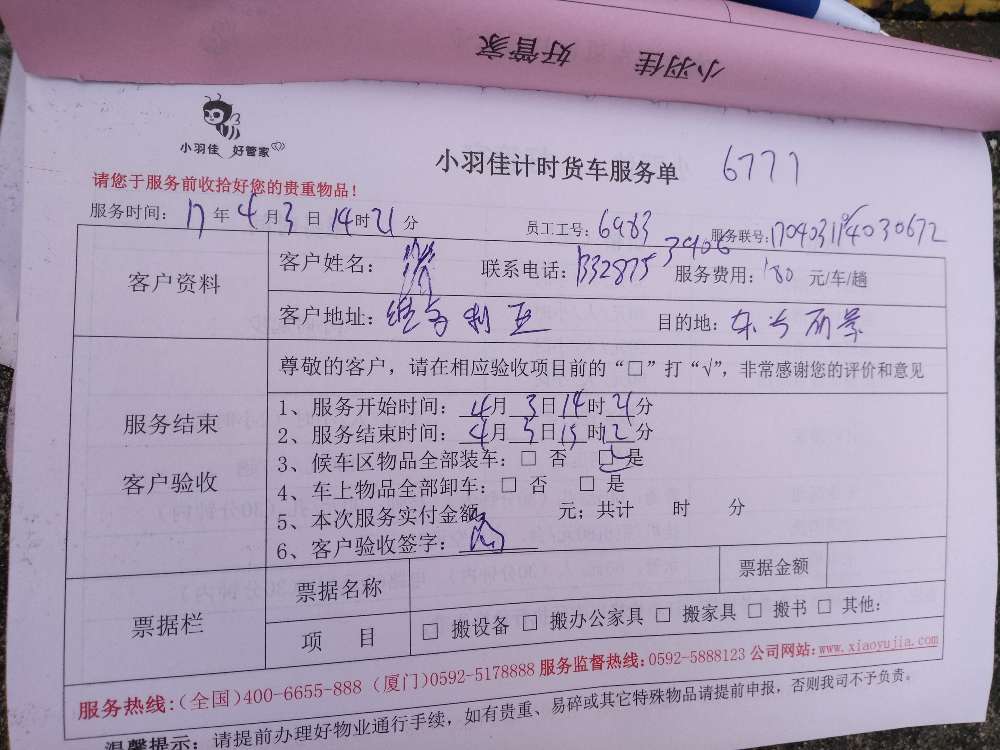 小羽佳 好管家
小羽佳 好管家
小羽佳计时货车服务单 6777
请您于服务前收拾好您的贵重物品！
服务时间：17年4月3日14时21分 员工工号：6983 服务联号：
客户资料
客户姓名： 联系电话：1332875 3906 服务费用：180 元/车/趟
客户地址：维多利亚 目的地：东方丽景
尊敬的客户，请在相应验收项目前的“□”打“√”，非常感谢您的评价和意见
服务结束
客户验收
1、服务开始时间：4月3日14时21分
2、服务结束时间：4月3日15时2分
3、候车区物品全部装车：□ 否 □ 是
4、车上物品全部卸车：□ 否 □ 是
5、本次服务实付金额 元；共计 时 分
6、客户验收签字：
票据栏
票据名称 票据金额
项 目 □ 搬设备 □ 搬办公家具 □ 搬家具 □ 搬书 □ 其他：
服务热线：（全国）400-6655-888（厦门）0592-5178888 服务监督热线：0592-5888123 公司网站：www.xiaoyujia.com
温馨提示：请提前办理好物业通行手续，如有贵重、易碎或其它特殊物品请提前申报，否则我司不予负责。